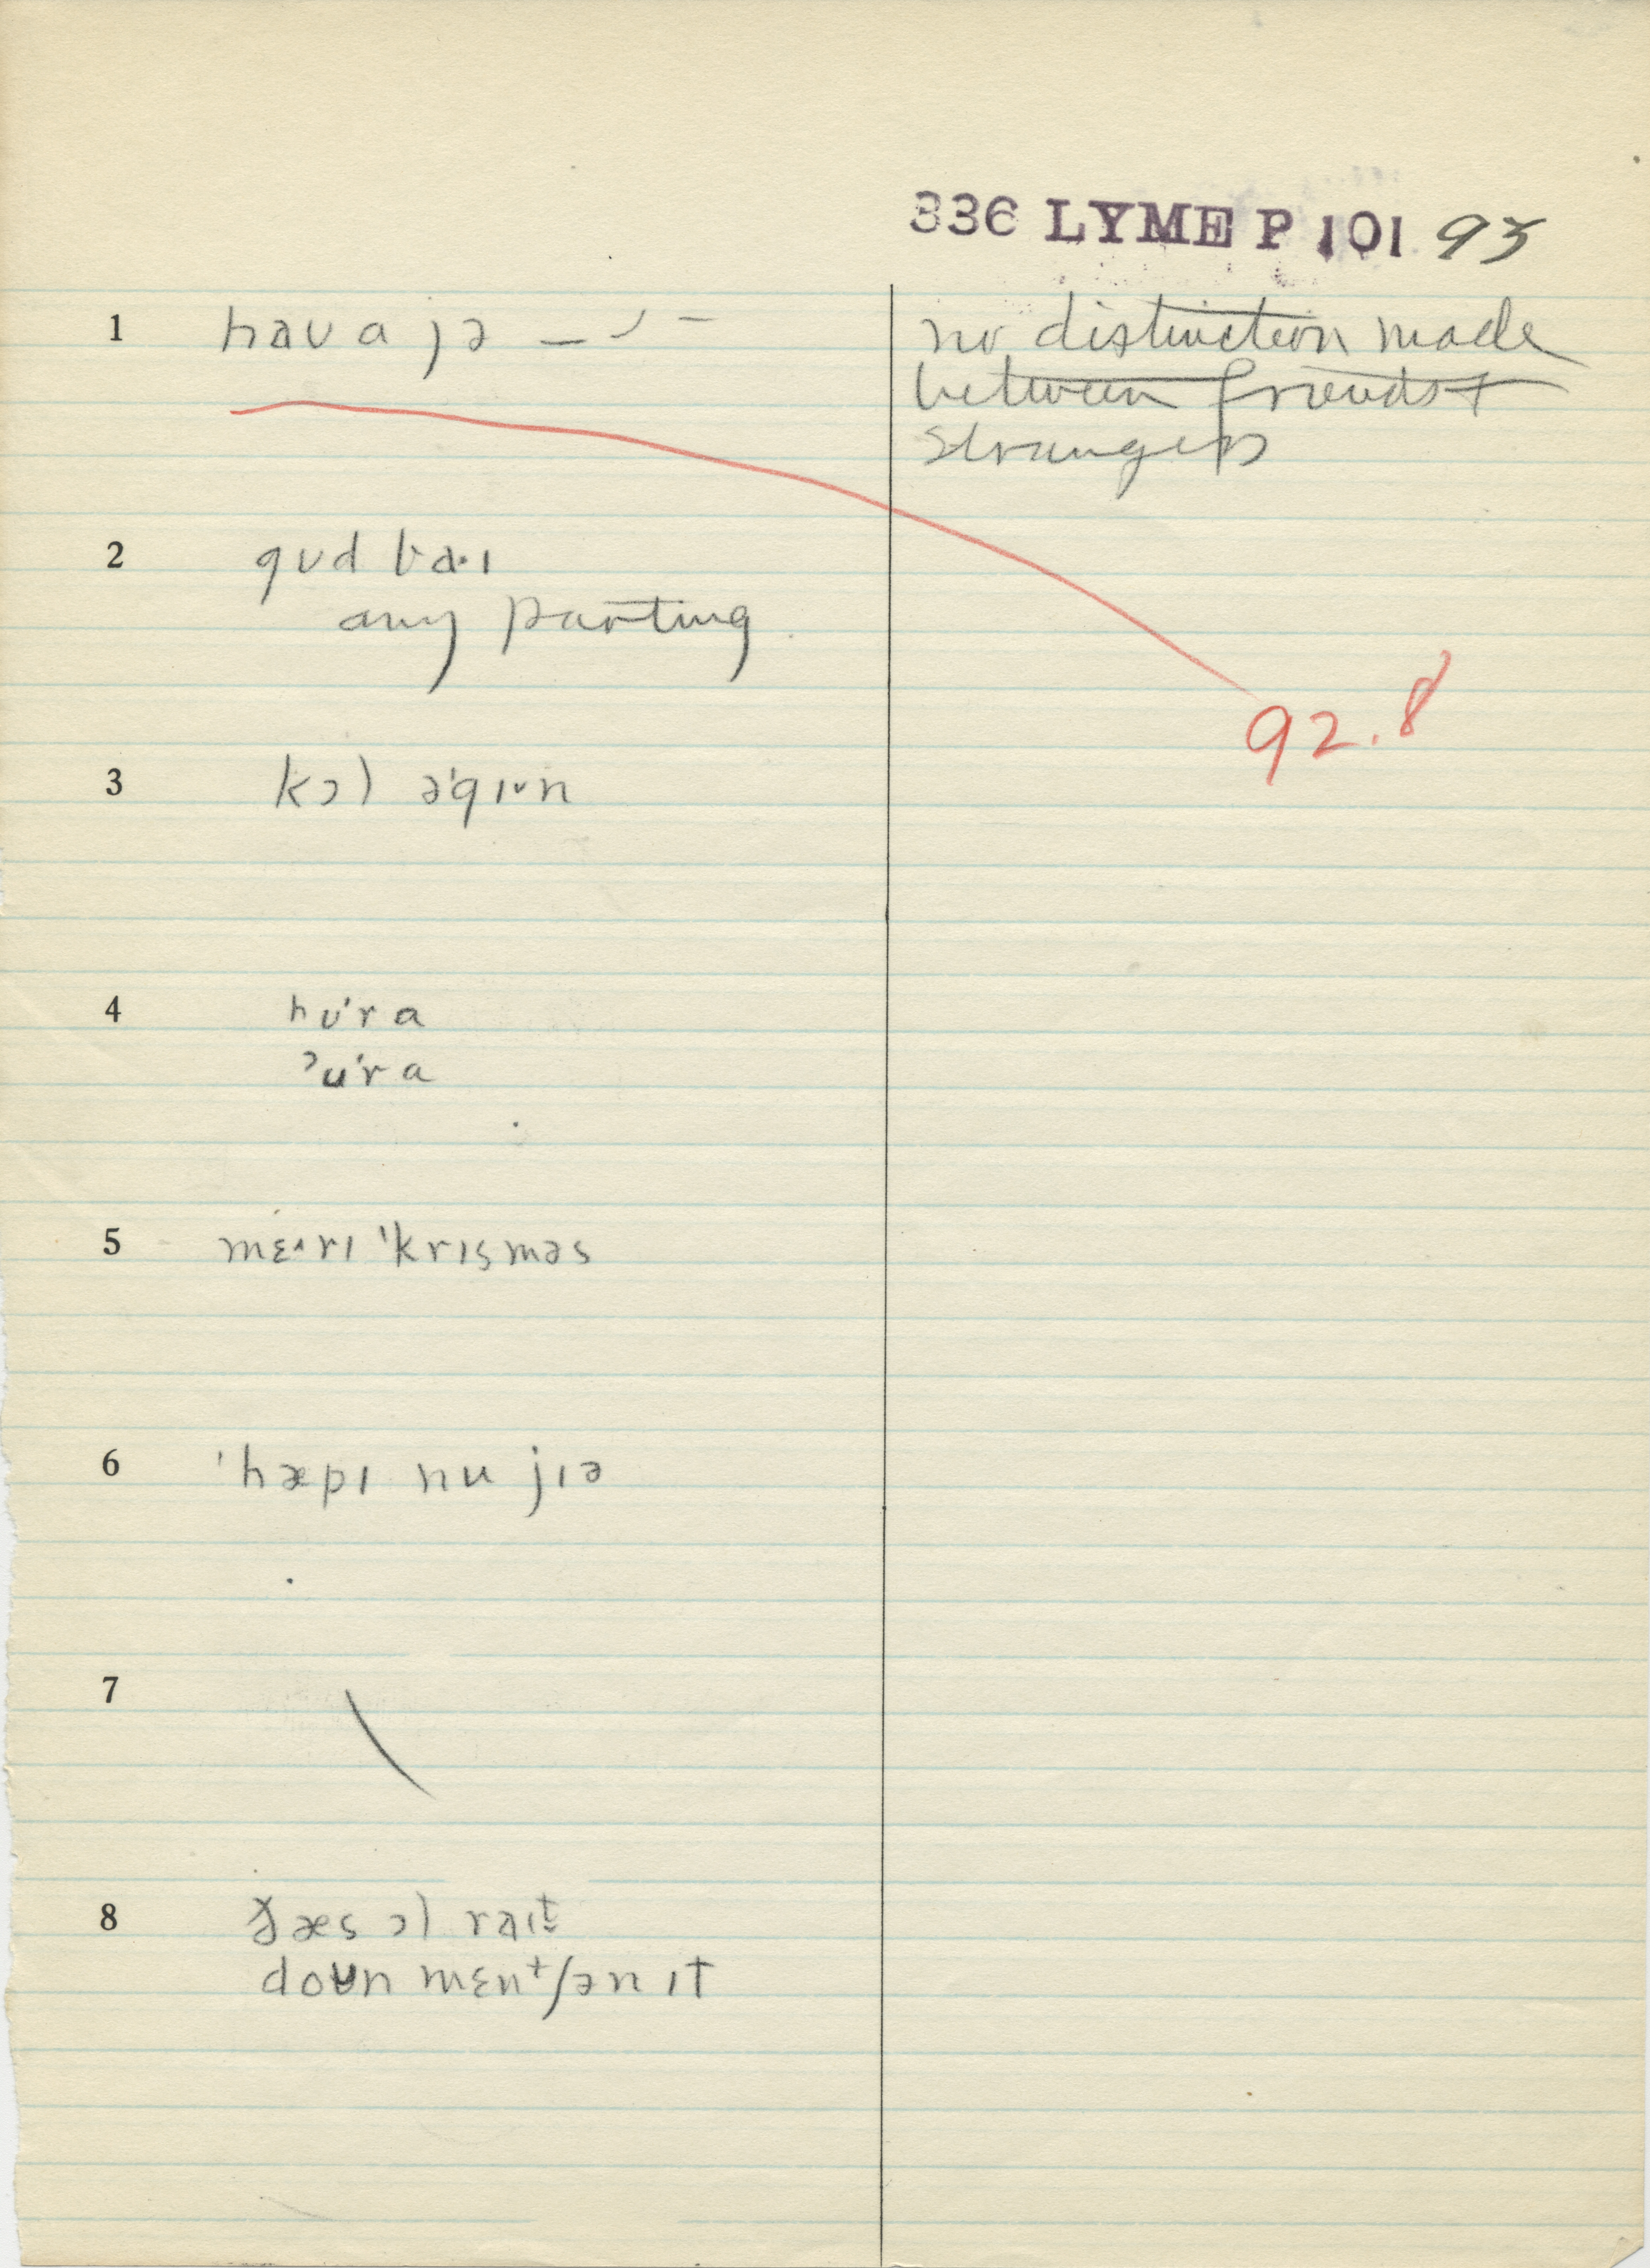 336 LYME P 101 93
1 haʊ a jə – ˊ –
no distinction made
between friends +
strangers
2 gʊd ba·ɪ
any parting
92.8
3 kɔl ə'gɪ˅n
4 hʊ'ra
ʔʊ'ra
5 mɛ˄rɪ 'krɪsməs
6 'hæpɪ nu jɪə
7 \
8 ðæs ɔl raɪt
doʊn mɛntʃən ɪt